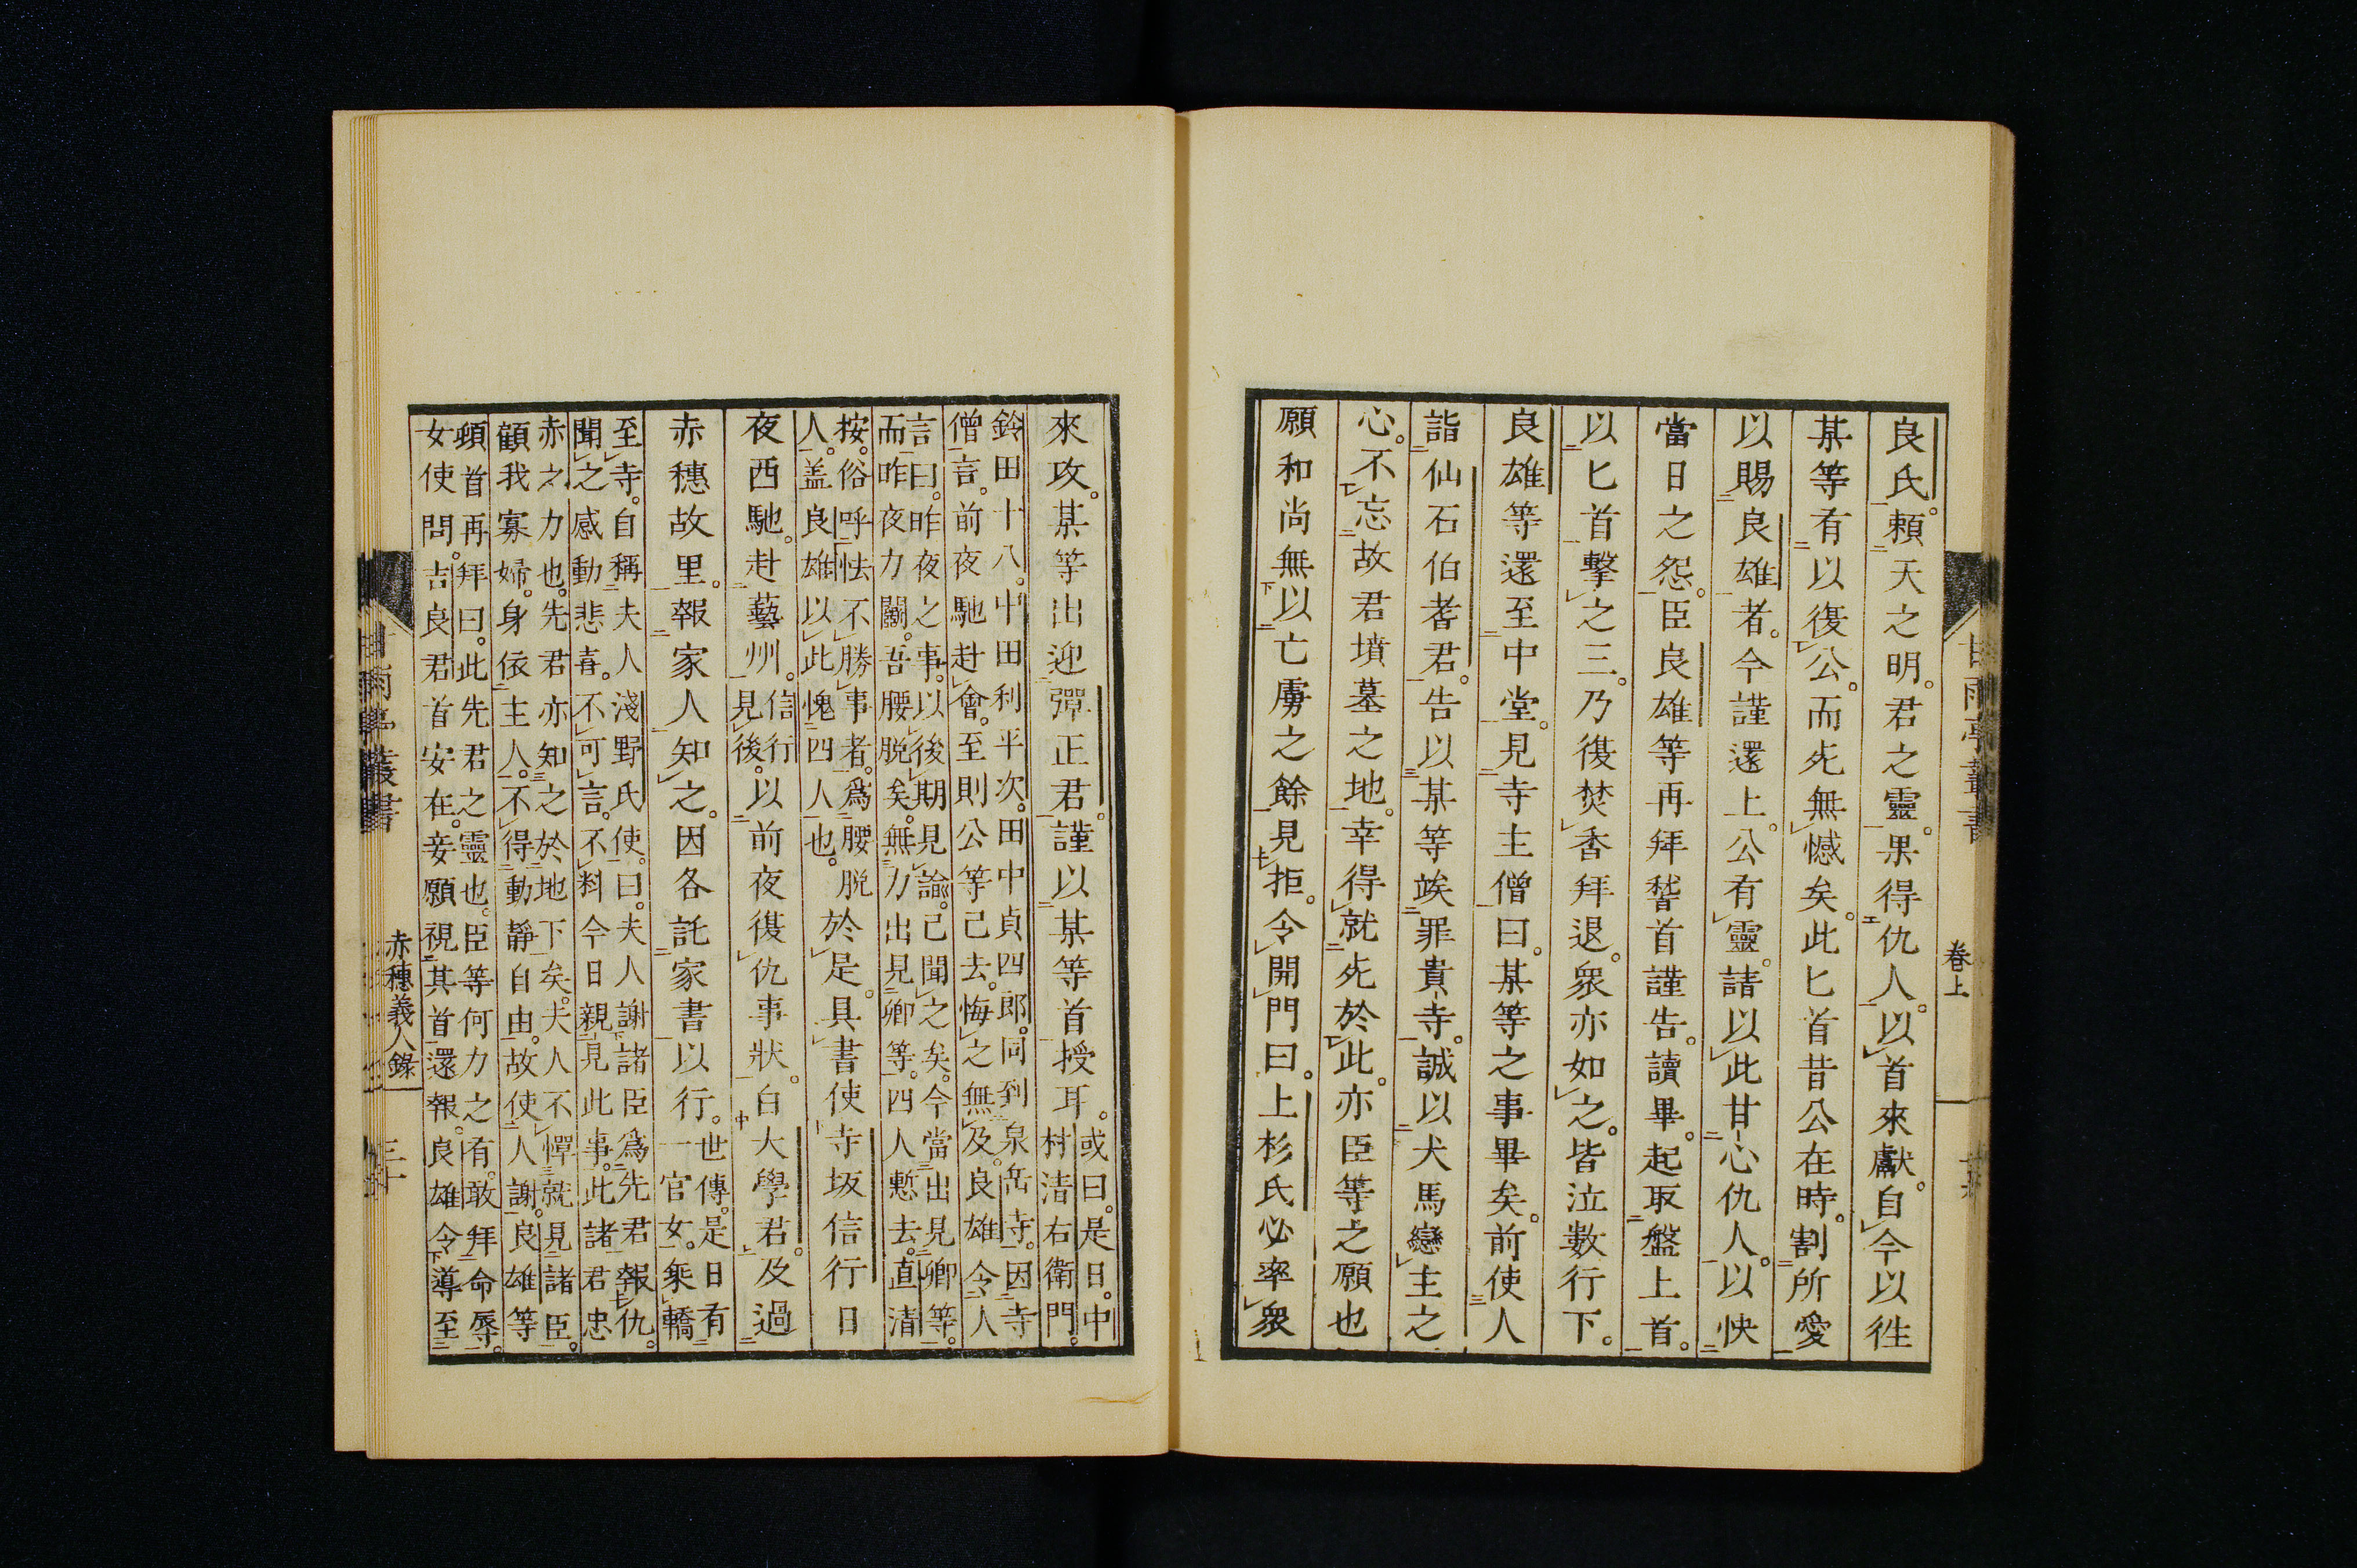 良氏。頼天之明。君之靈。果得仇人。以首來獻。自今以徃
某等有以復公。而死無憾矣。此匕首昔公在時。割所愛
以賜良雄者。今謹還上。公有靈。請以此甘心仇人。以快
當日之怨。臣良雄等再拜嵆首謹告。讀畢。起取盤上首。
以匕首擊之三。乃復焚香拜退。衆亦如之。皆泣數行下。
良雄等還至中堂。見寺主僧曰。某等之事畢矣。前使人
詣仙石伯耆君。告以某等竢罪貴寺。誠以犬馬戀主之
心。不忘故君墳墓之地。幸得就死於此。亦臣等之願也
願和尚無以亡虜之餘見拒。令開門曰。上杉氏必率衆
卷上
來攻。某等出迎彈正君。謹以某等首授耳。或曰。是日。中
村清右衛門。
鈴田十八。中田利平次。田中貞四郎。同到泉岳寺。因寺
僧言。前夜馳赴會。至則公等已去。悔之無及。良雄令人
言曰。昨夜之事。以後期見諭。已聞之矣。今當出見卿等。
而昨夜力鬬。吾腰脱矣。無力出見卿等。四人慙去。直清
按。俗呼怯不勝事者。爲腰脱
人。盖良雄以此愧四人也。於是。具書使寺坂信行日
夜西馳。赴藝州。信行
見後。以前夜復仇事狀。白大學君。及過
赤穗故里。報家人知之。因各託家書以行。世傳。是日有
一官女。乘轎
至寺。自稱夫人淺野氏使。曰。夫人謝諸臣爲先君報仇。
聞之感動悲喜。不可言。不料今日親見此事。此諸君忠
赤之力也。先君亦知之於地下矣。夫人不憚就見諸臣。
顧我寡婦。身依主人。不得動靜自由。故使人謝。良雄等
頓首再拜曰。此先君之靈也。臣等何力之有。敢拜命辱。
女使問。吉良君首安在。妾願視其首還報。良雄令導至
甘雨亭叢書
赤穗義人錄